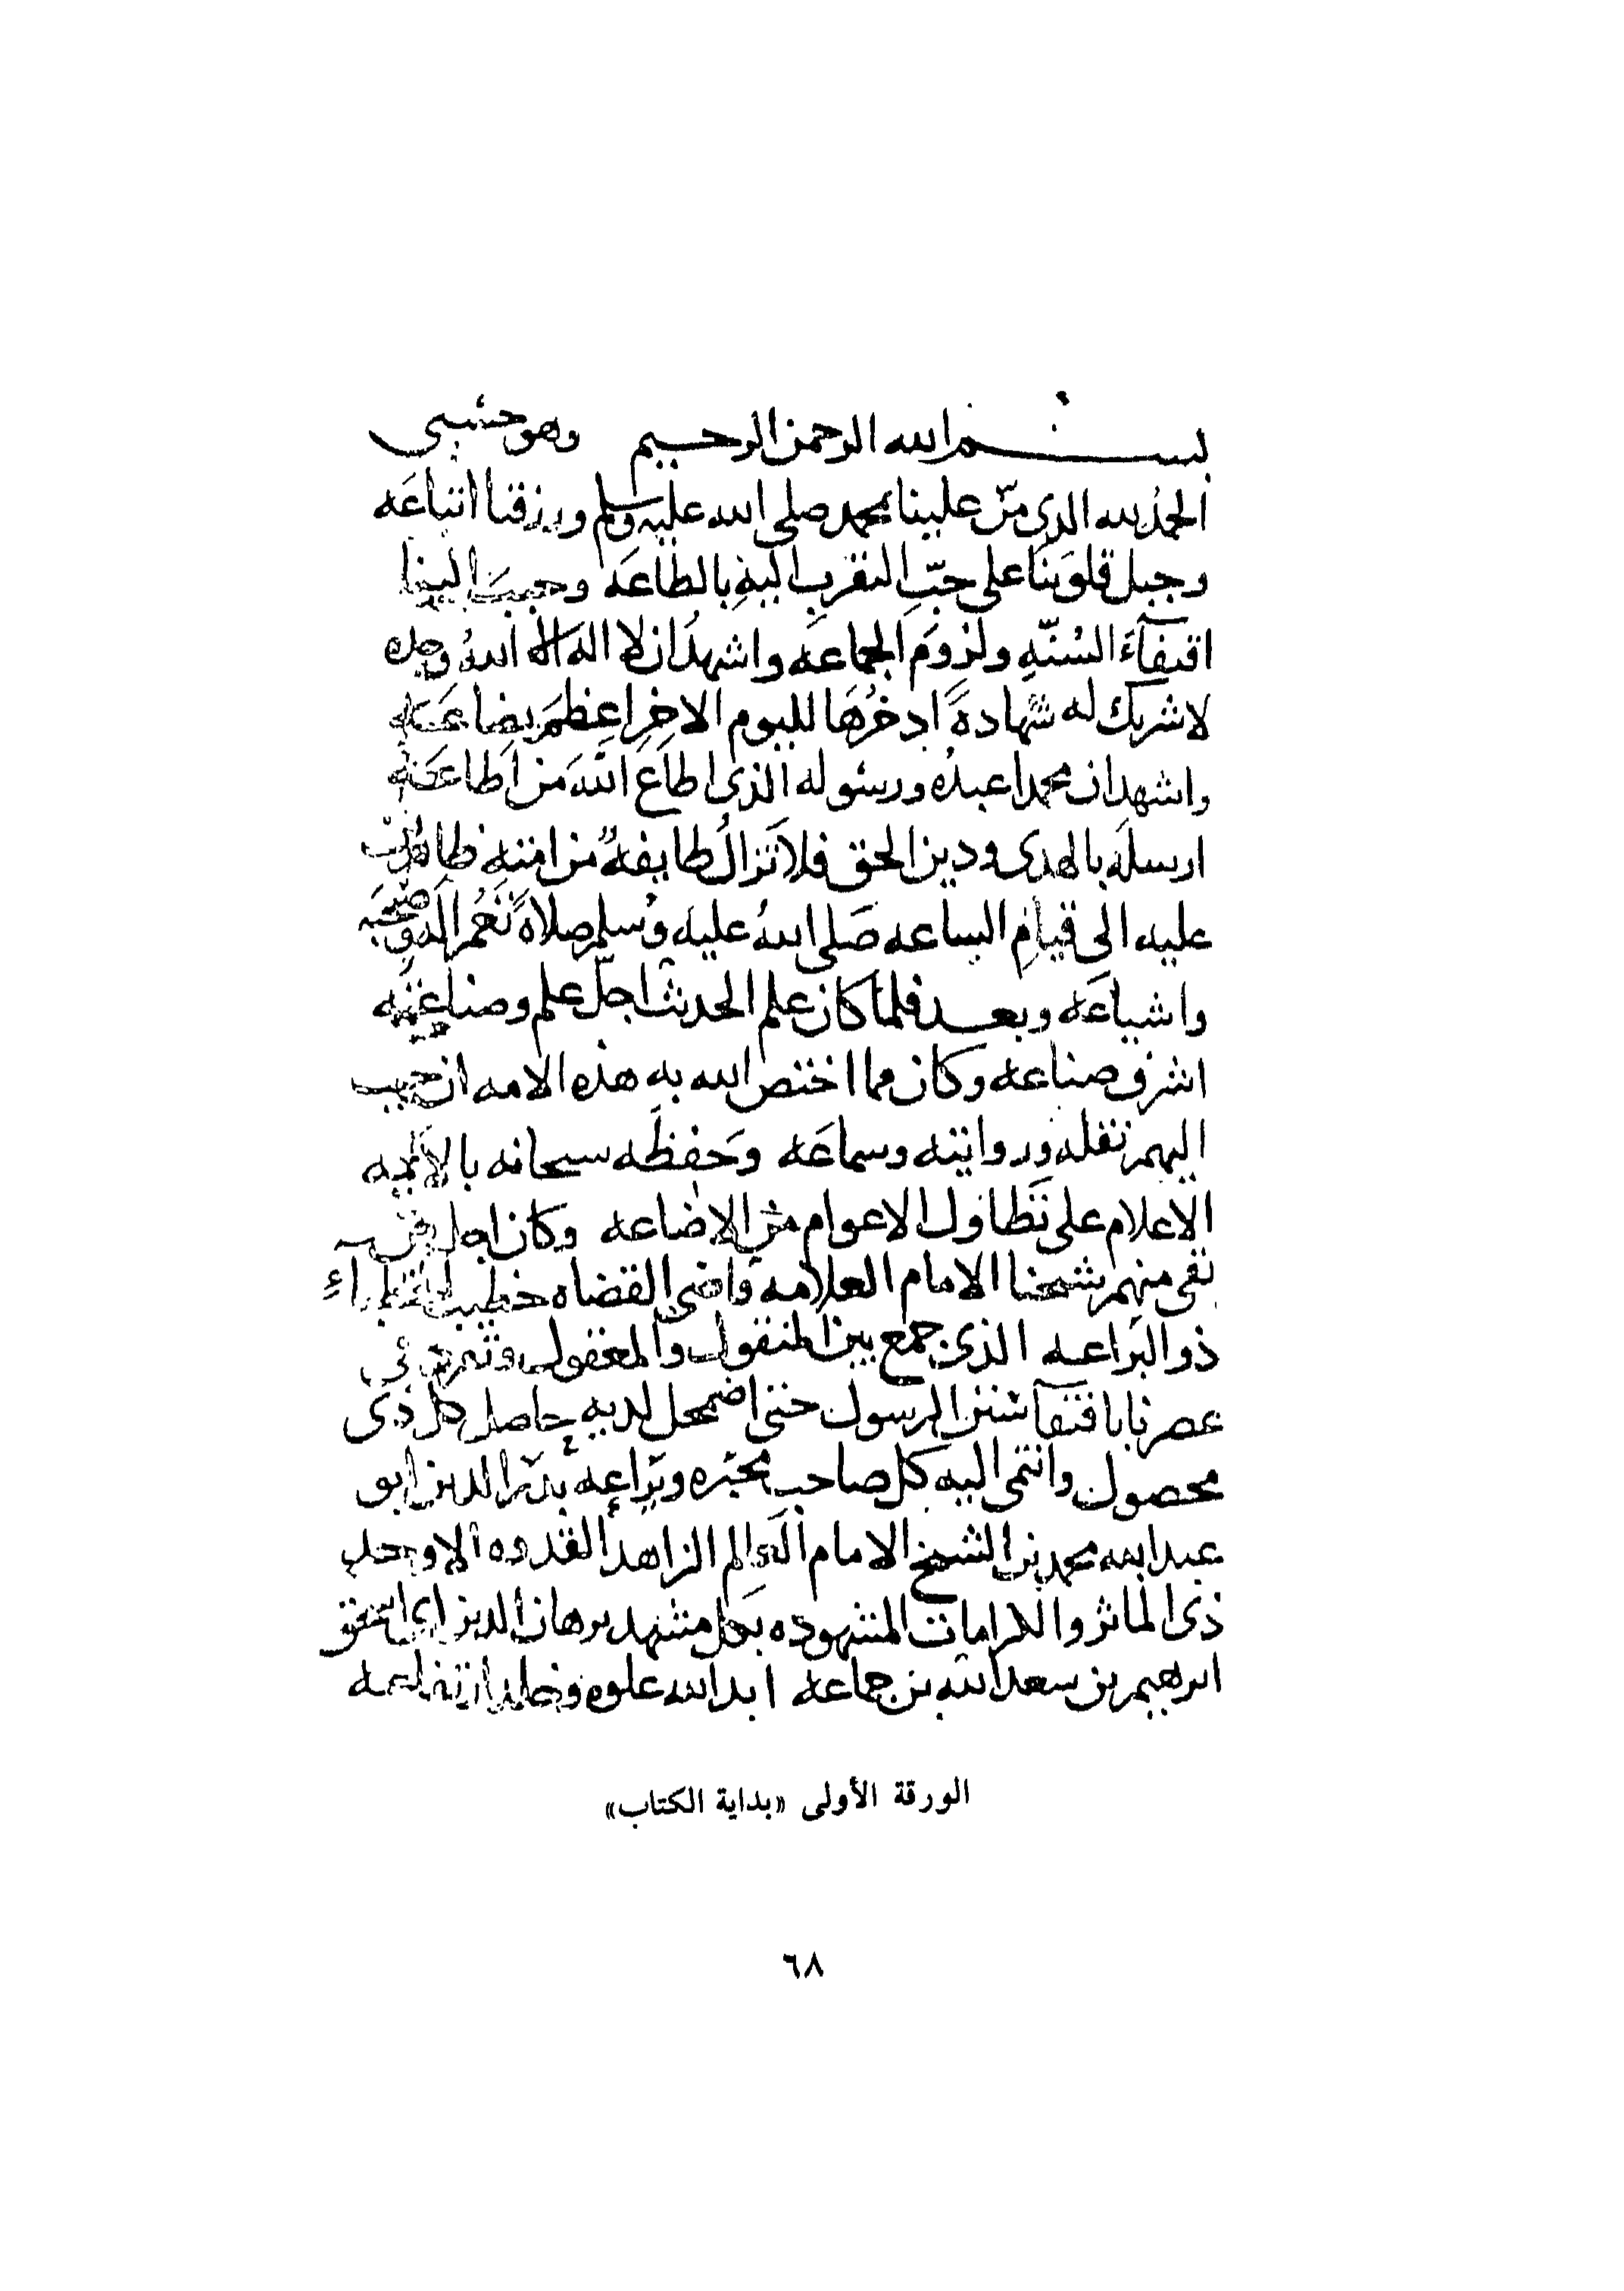 بسم الله الرحمن الرحيم وهو حسبي
الحمدُ لله الذي منّ علينا بمحمد صلى الله عليه وسلم ورزقنا اتباعَه
وجبل قلوبَنا على حبّ التقرب اليهِ بالطاعَه وحببَ الينا
اقتفآءَ السُنّهِ ولزومَ الجماعَه واشهدُ ان لا اله الا اللهُ وحده
لا شريك له شهادةً ادخرُها لليوم الاخرِ اعظمَ بضاعَه
واشهد ان محمدا عبدُه ورسوله الذي اطاعَ اللَّهَ من اطاعَه
ارسلَه بالهدى ودين الحق فلا تَزالُ طايفهٌ من امته ظاهرين
عليه الى قيامِ الساعه صَلى اللهُ عليه وسلم صلاةً تَعُم الَه وصحبَه
واشياعَه وبعد فلما كان علم الحديث اجلّ علم وصناعته
اشرف صناعه وكان مما اختص الله به هذه الامه ان حبب
اليهم نقله وروايته وسماعَه وحَفظَه سبحانه بالايمه
الاعلام على تَطاول الاعوام من الاضاعه وكان اجل من
بقي منهم شيخنا الامام العلامه قاضي القضاه خطيب الخطبآء
ذو البَراعه الذي جمع بين المنقول والمعقول وتميز في
عصرنا باقتفآ سنن الرسول حتى اضمحل لديه حاصل كل ذي
محصول وانتمى اليه كل صاحب محبَره ويَراعِه بدر الدين ابو
عبد الله محمد بن الشيخ الامام العالم الزاهد القدوه الاوحد
ذي الماثر والكرامات المشهوده بكل مشهد برهان الدين ابي اسحق
ابرهيم بن سعد الله بن جماعه ابد الله علوه وخلد ارتفاعه
الورقة الأولى «بداية الكتاب»
٦٨